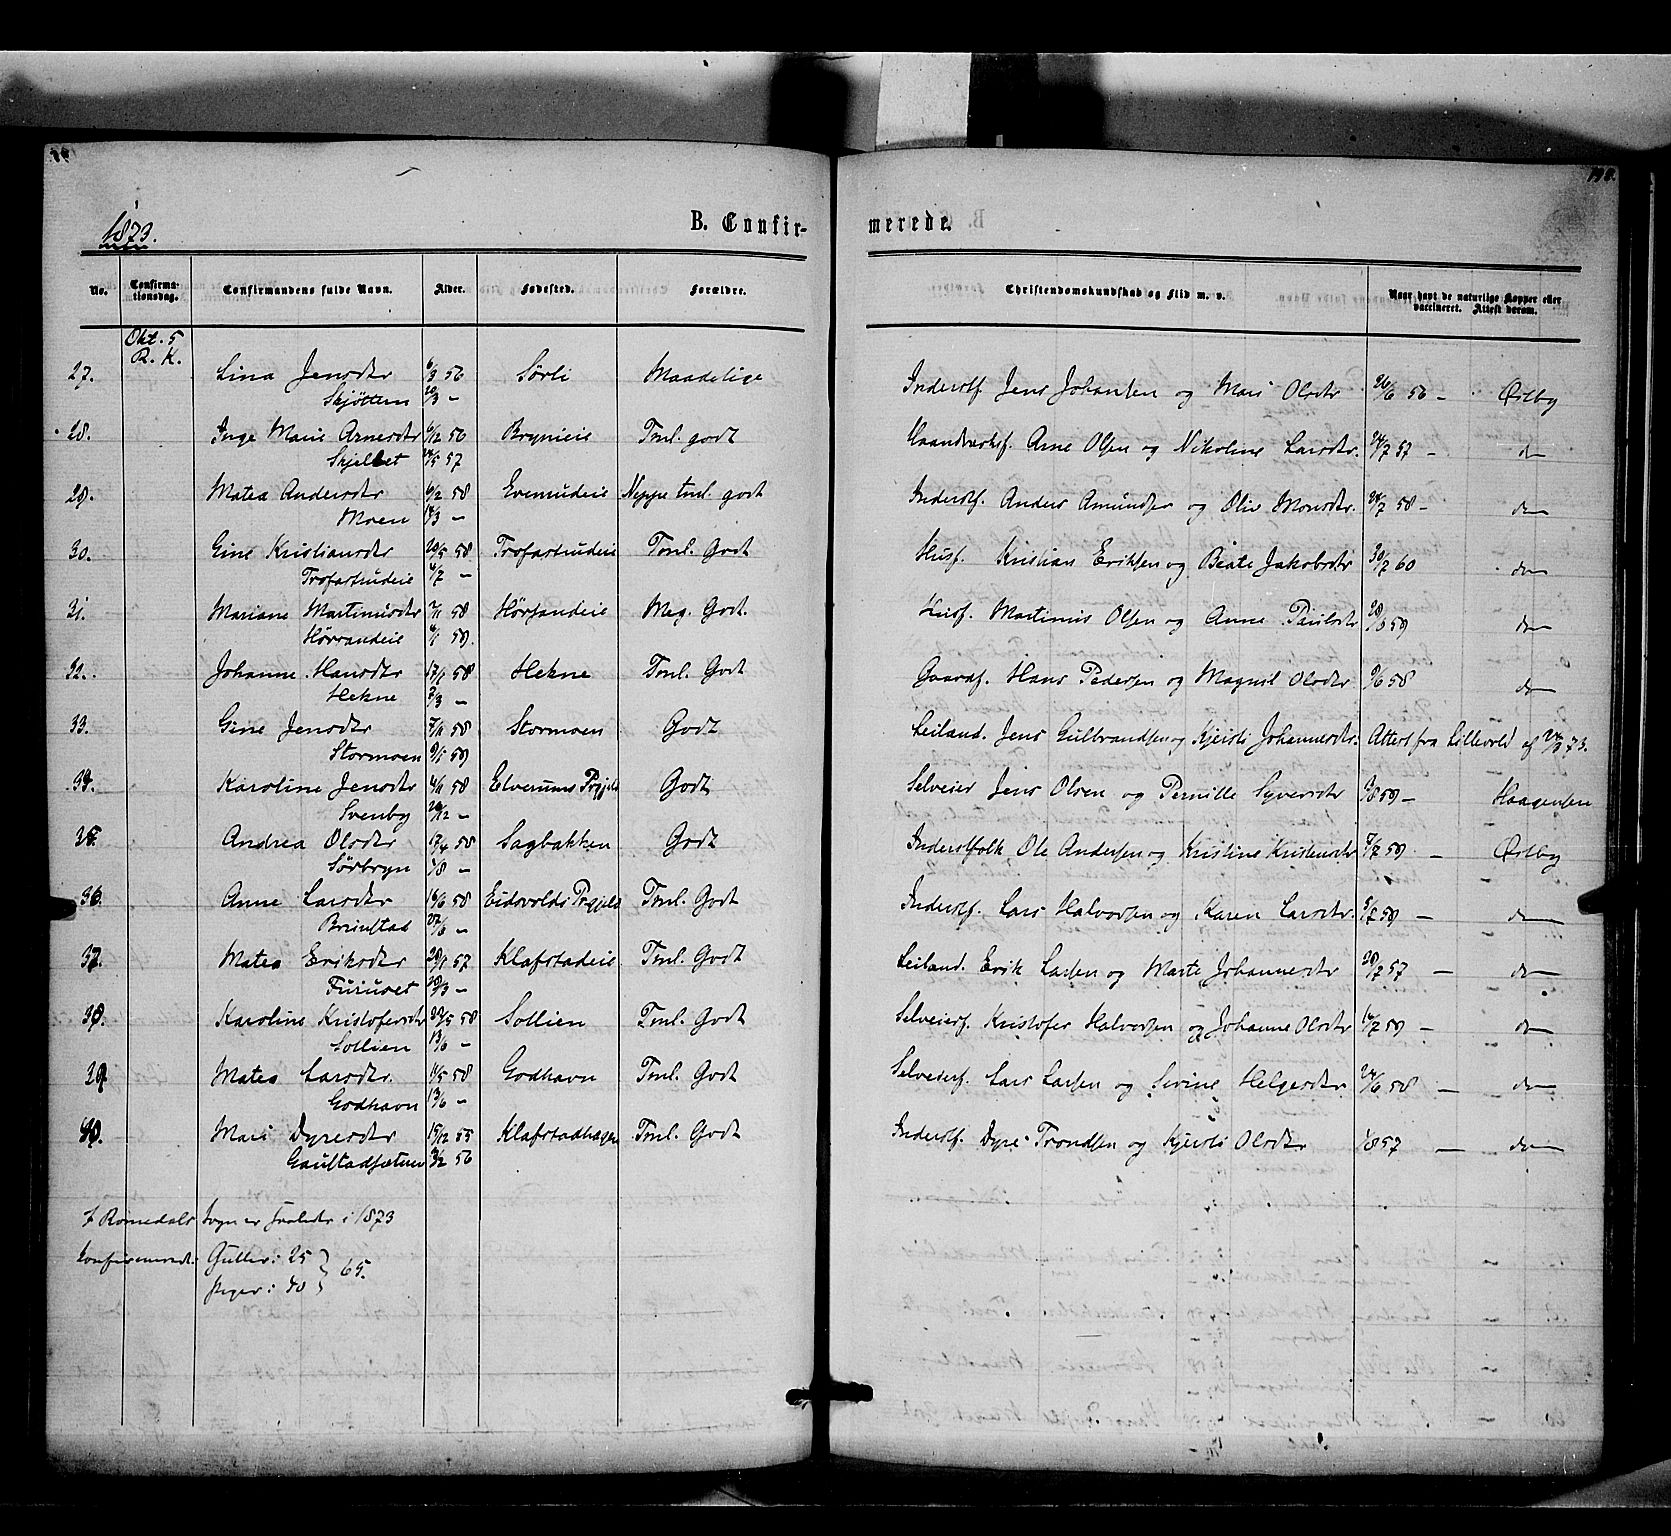 1873.
B. Confir-
merede.
No. Confirmationsdag. Confirmandens fulde Navn. Alder. Fødested. Forældre. Christendomskundskab og Flid m. v. Naar havt de naturlige Kopper eller vaccineret. Attest derom.
Okt. 5
R. K.
27. Lina Jensdtr 6/3 56 Sörli Maadelige Inderstf. Jens Johansen og Mari Olsdtr 26/6 56 — Østby
Skjötten 24/3 —
28. Inge Marie Arnesdtr 6/12 56 Brynieie Tml. godt Haandverksf. Arne Olsen og Nikoline Larsdtr. 24/7 57 — do
Skjellet 24/5 57
29. Matea Andersdtr 6/2 58 Evenudeie Neppe tml. godt Inderstf. Anders Amundsen og Oliv Monsdtr. 24/7 58 — do
Moen 14/3 —
30. Gine Kristiansdtr 20/5 58 Trofastrudeie Tml. Godt Husf. Kristian Eriksen og Beate Jakobsdtr 30/7 60 do
Trofastrudeie 4/7 —
31. Mariane Martinusdtr 7/11 58 Hörsandeie Meg. Godt. Husf. Martinus Olsen og Anne Paulsdtr 59 do
Hörsandeie 6/1 59.
32. Johanne Hansdtr 17/1 58 Hekne Tml. Godt Gaardf. Hans Pedersen og Magnil Olsdtr 9/6 58 do
Hekne 7/3 —
33. Gine Jensdtr 7/11 58 Stormoen Godt Leiland. Jens Gulbrandsen og Kjersti Johannesdtr. Attest fra Lillevold af 73.
Stormoen 9/1 59
34. Karoline Jensdtr 4/11 58 Elverums Prgjeld Godt Selveier Jens Olsen og Pernille Syversdtr 59 — Haagensen
Svenby 26/12 —
35. Andrea Olsdtr 17/4 58 Sagbakken Godt Inderstfolk Ole Andersen og Kristine Kristensdtr 7/7 59 — Østby
Sörbryn 1/8 —
36. Anne Larsdtr 16/6 58 Eidsvolds Prgjeld Tml. Godt Inderstf. Lars Halvorsen og Karen Larsdtr. 5/7 59 — do
Bruustad —
37. Matea Eriksdtr 20/1 57 Klafstadeie Tml. Godt Leiland. Erik Larsen og Marte Johannesdtr 57 — do
Furuset 29/3 —
38. Karoline Kristofersdtr 23/5 58 Sollien Tml. Godt Selveierf. Kristofer Halvorsen og Johanne Olsdtr 14/7 59 — do
Sollien 13/6 —
39. Matea Larsdtr. 11/5 58 Godhavn Tml. Godt Selveierf. Lars Larsen og Sirine Helgesdtr 24/6 58 — do
Godhavn 13/6 —
40. Mari Dyresdtr 15/12 55 Klafstadhagen Tml. Godt Inderstf. Dyre Trondsen og Kjersti Olsdtr 1/8 57 — do
Gaustadsætern 3/2 56
I Romedals Sogn er saaledes i 1873
konfirmeret. Gutter: 25
Piger: 40 } 65.